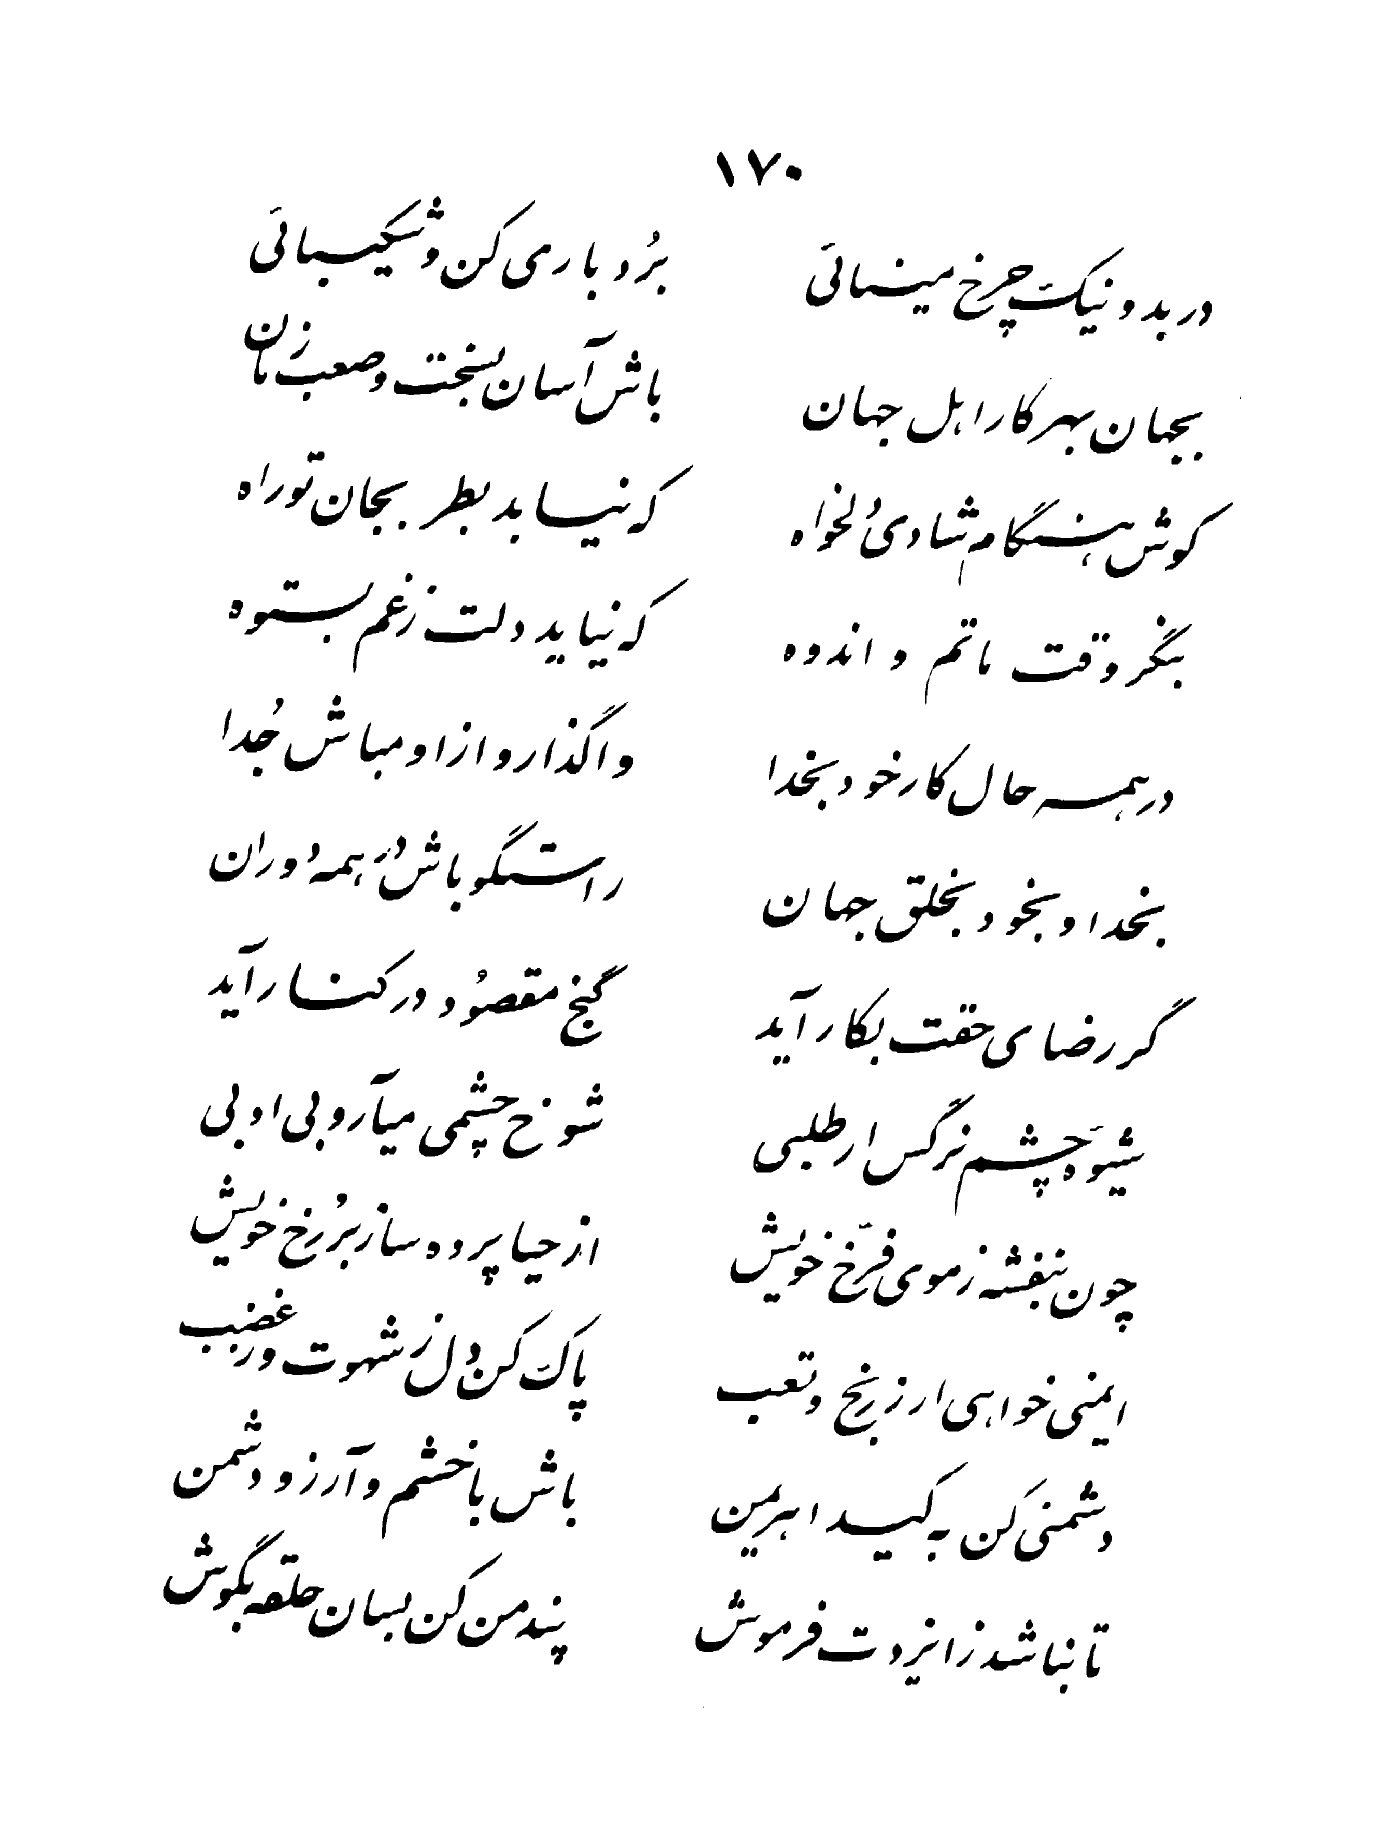 ۱۷۰
در بد و نیک چرخ مینائی
بُردباری کن و شکیبائی
بجهان بهر کار اهل جهان
باش آسان بسخت و صعب زمان
کوش هنگامهٔ شادی دُلخواه
که نیاید بطر بجان تو راه
بنگر وقت ماتم و اندوه
که نیاید دلت ز غم بستوه
در همه حال کار خود بخدا
واگذار و از او مباش جُدا
بخدا و بخود بخلق جهان
راستگو باش در همه دوران
گر رضای حقت بکار آید
گنج مقصُود در کنار آید
شیوهٔ چشم نرگس ار طلبی
شوخ چشمی میآر و بی ادبی
چون بنفشه ز موی فرّخ خویش
از حیا پرده ساز بر رُخ خویش
ایمنی خواهی ار ز رنج و تعب
پاک کن دل ز شهوت و ز غضب
دشمنی کن به کید اهریمن
باش با خشم و آرزو دشمن
تا نباشد ز ایزدت فرموش
پند من کن بسان حلقه بگوش